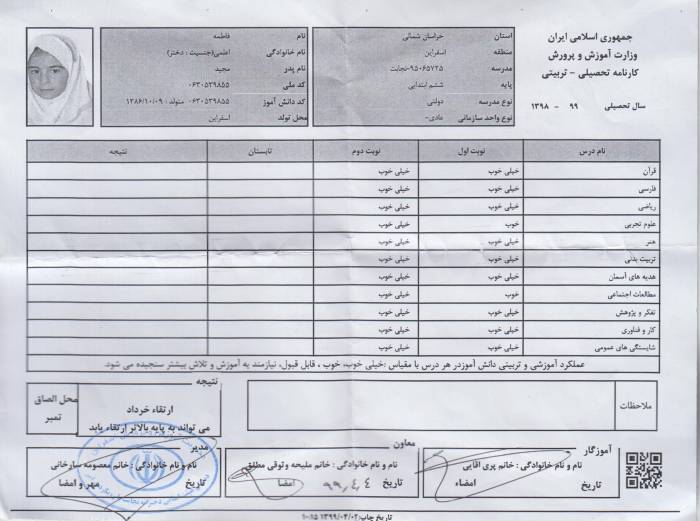 جمهوری اسلامی ایران
وزارت آموزش و پرورش
کارنامه تحصیلی - تربیتی
سال تحصیلی ۹۹ - ۱۳۹۸
استان خراسان شمالی
منطقه اسفراین
مدرسه ۹۵۰۶۵۷۲۵-نجابت
پایه ششم ابتدایی
نوع مدرسه دولتی
نوع واحد سازمانی عادی-
نام فاطمه
نام خانوادگی اعلمی(جنسیت : دختر)
نام پدر مجید
کد ملی ۰۶۳۰۵۳۹۸۵۵
کد دانش آموز ۰۶۳۰۵۳۹۸۵۵ متولد : ۱۲۸۶/۱۰/۰۹
محل تولد اسفراین
نام درس نوبت اول نوبت دوم تابستان نتیجه
قرآن خیلی خوب خیلی خوب
فارسی خیلی خوب خیلی خوب
ریاضی خیلی خوب خیلی خوب
علوم تجربی خوب خیلی خوب
هنر خیلی خوب خیلی خوب
تربیت بدنی خیلی خوب خیلی خوب
هدیه های آسمان خیلی خوب خیلی خوب
مطالعات اجتماعی خوب خیلی خوب
تفکر و پژوهش خیلی خوب خیلی خوب
کار و فناوری خیلی خوب خیلی خوب
شایستگی های عمومی خیلی خوب خیلی خوب
عملکرد آموزشی و تربیتی دانش آموزدر هر درس با مقیاس :خیلی خوب، خوب ، قابل قبول، نیازمند به آموزش و تلاش بیشتر سنجیده می شود.
ملاحظات
نتیجه
ارتقاء خرداد
می تواند به پایه بالاتر ارتقاء یابد
محل الصاق
تمبر
آموزگار
نام و نام خانوادگی : خانم پری اقایی
تاریخ امضاء
معاون
نام و نام خانوادگی : خانم ملیحه وثوقی مطلق
تاریخ ۹۹,۴,۴ امضا
مدیر
نام و نام خانوادگی : خانم معصومه سارخانی
تاریخ مهر و امضا
تاریخ چاپ:۱۳۹۹/۰۴/۰۲ ۱۰:۱۵